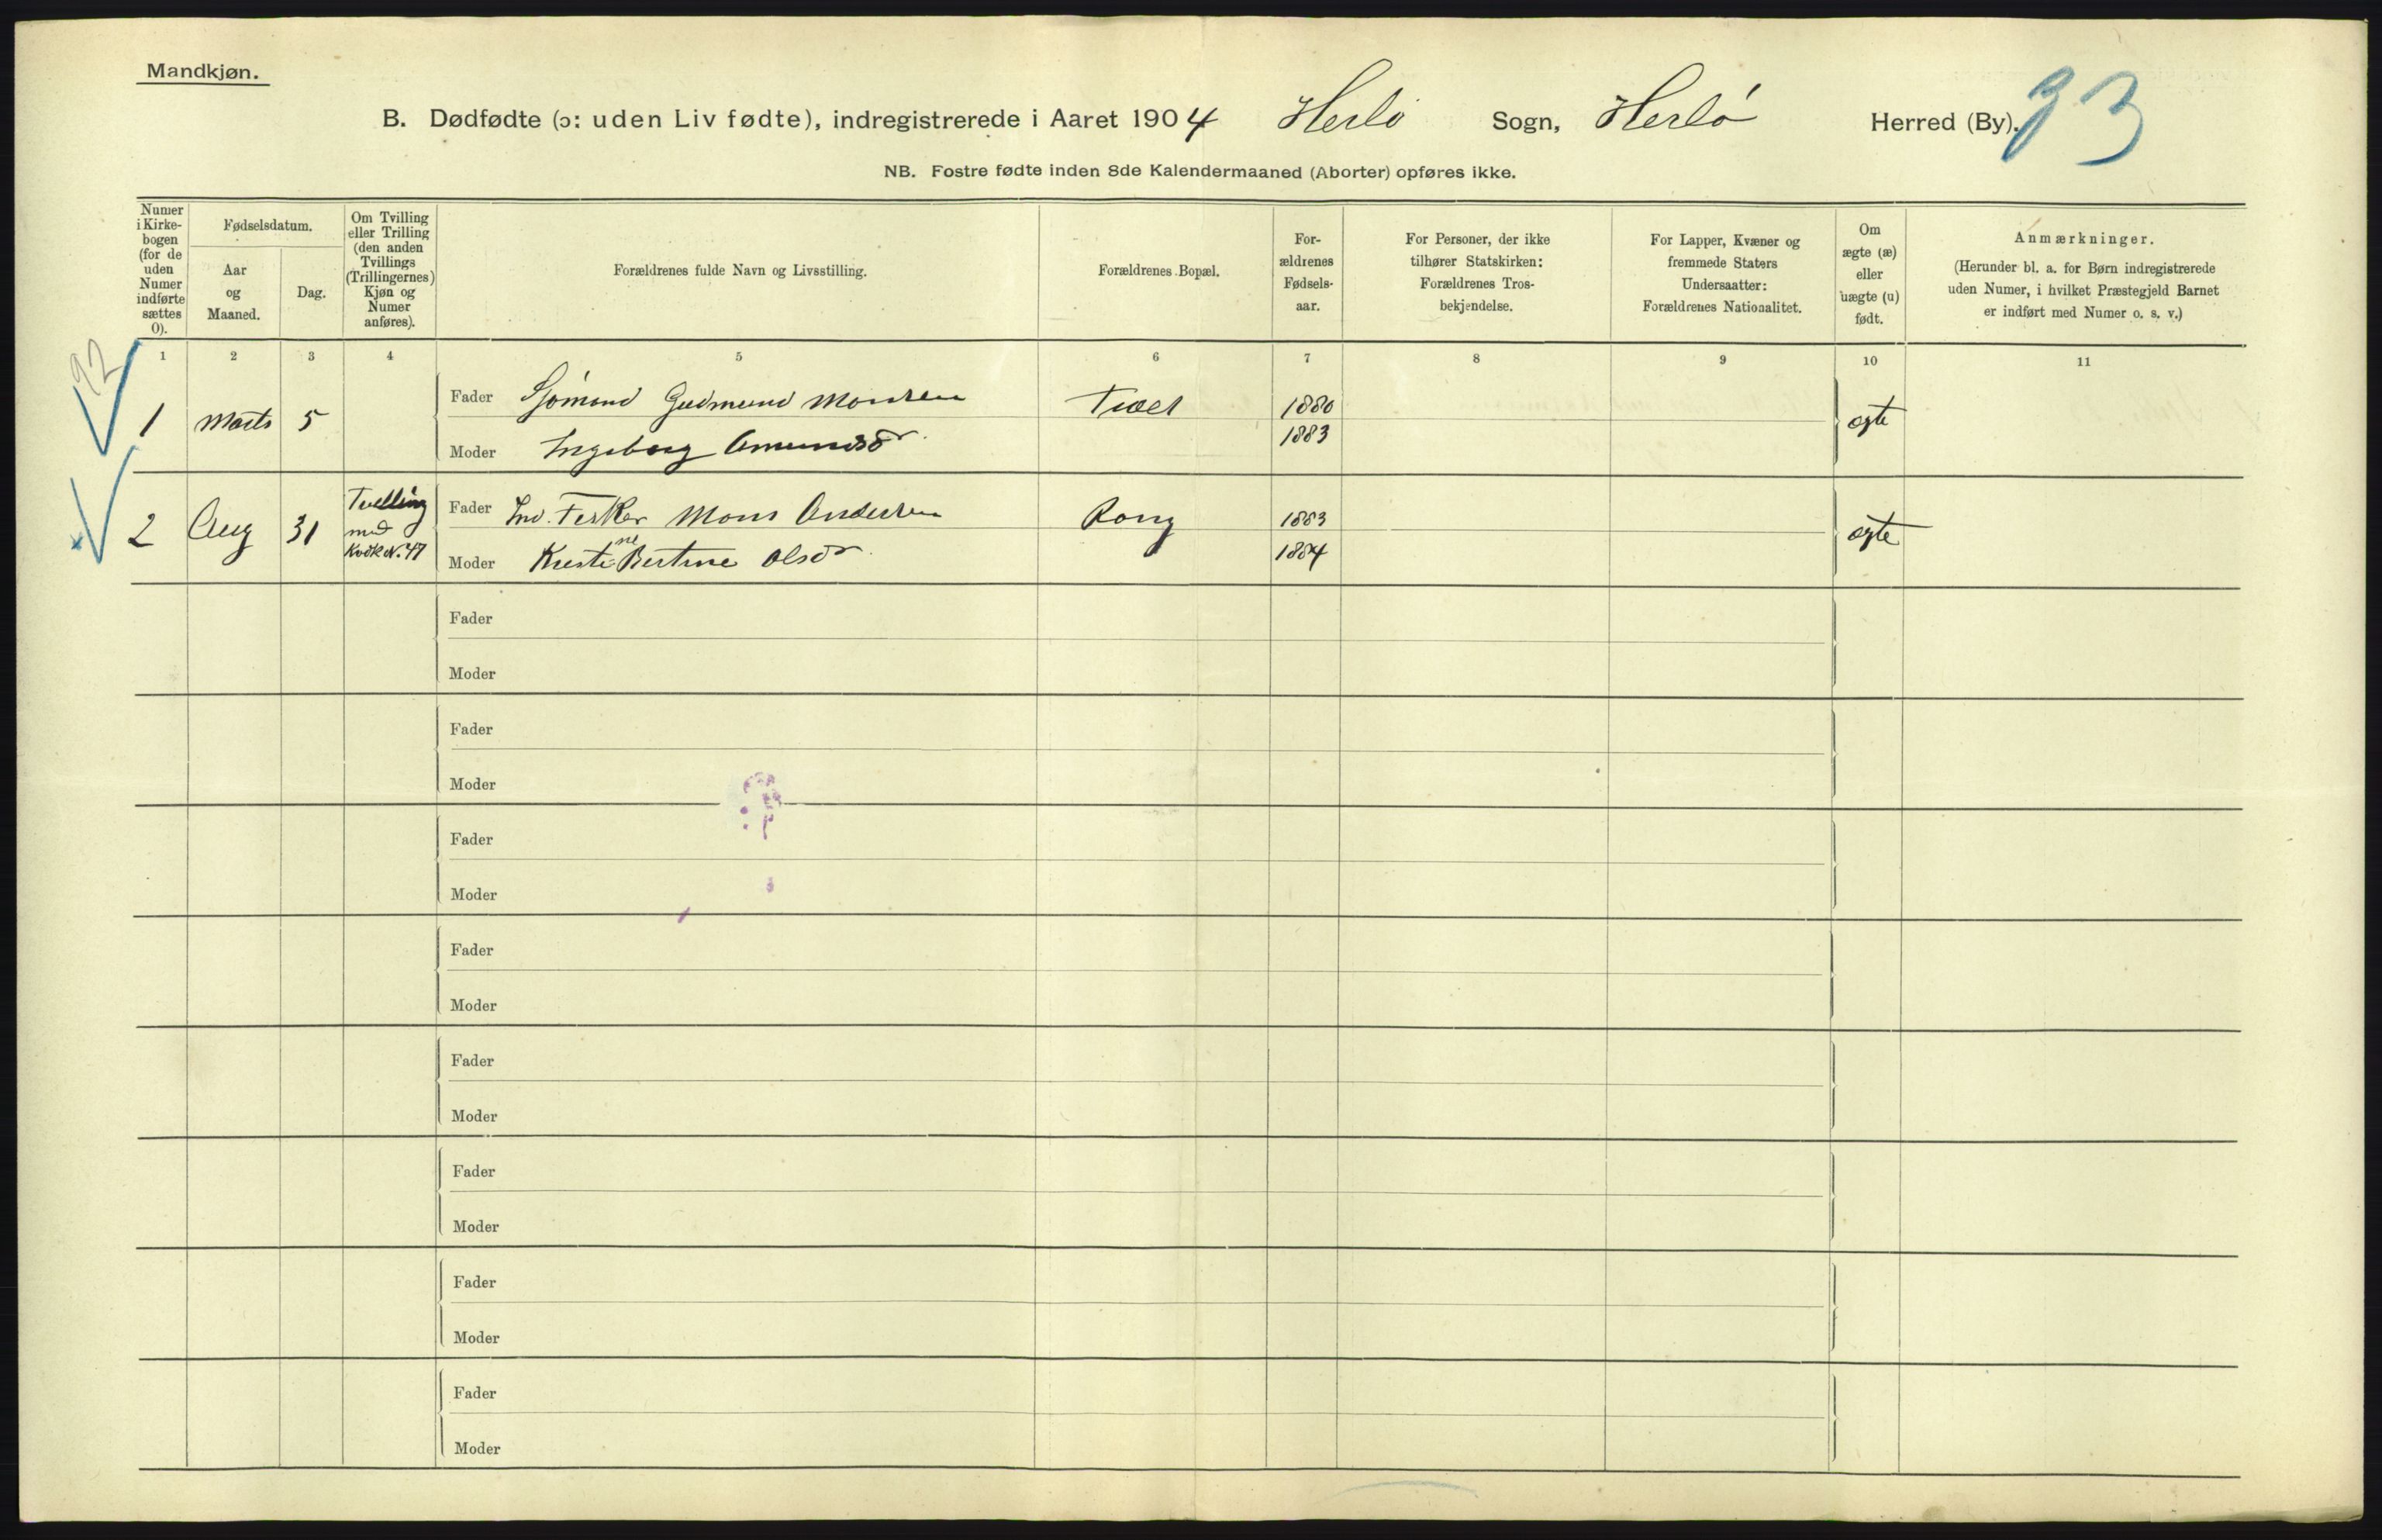 Mandkjøn.
B. Dødfødte (ɔ: uden Liv fødte), indregistrerede i Aaret 1904 Herlö Sogn, Herlö Herred (By).
33
NB. Fostre fødte inden 8de Kalendermaaned (Aborter) opføres ikke.
Numer i Kirke-bogen (for de uden Numer indførte sættes 0).
Fødselsdatum.
Aar og Maaned.
Dag.
Om Tvilling eller Trilling (den anden Tvillings (Trillingernes) Kjøn og Numer anføres).
Forældrenes fulde Navn og Livsstilling.
Forældrenes Bopæl.
For-ældrenes Fødsels-aar.
For Personer, der ikke tilhører Statskirken: Forældrenes Tros-bekjendelse.
For Lapper, Kvæner og fremmede Staters Undersaatter: Forældrenes Nationalitet.
Om ægte (æ) eller uægte (u) født.
Anmærkninger.
(Herunder bl. a. for Børn indregistrerede uden Numer, i hvilket Præstegjeld Barnet er indført med Numer o. s. v.)
1 2 3 4 5 6 7 8 9 10 11
92
1 Marts 5 Fader Sjømand Gudmund Monsen 1880 ægte
Moder Ingeborg Amundsdr 1883
2 Aug 31 Tvilling med Kvdk N. 47 Fader Ind. Fisker Mons Andersen Rong 1883 ægte
Moder Kristine Bertine Olsdr 1884
Fader
Moder
Fader
Moder
Fader
Moder
Fader
Moder
Fader
Moder
Fader
Moder
Fader
Moder
Fader
Moder